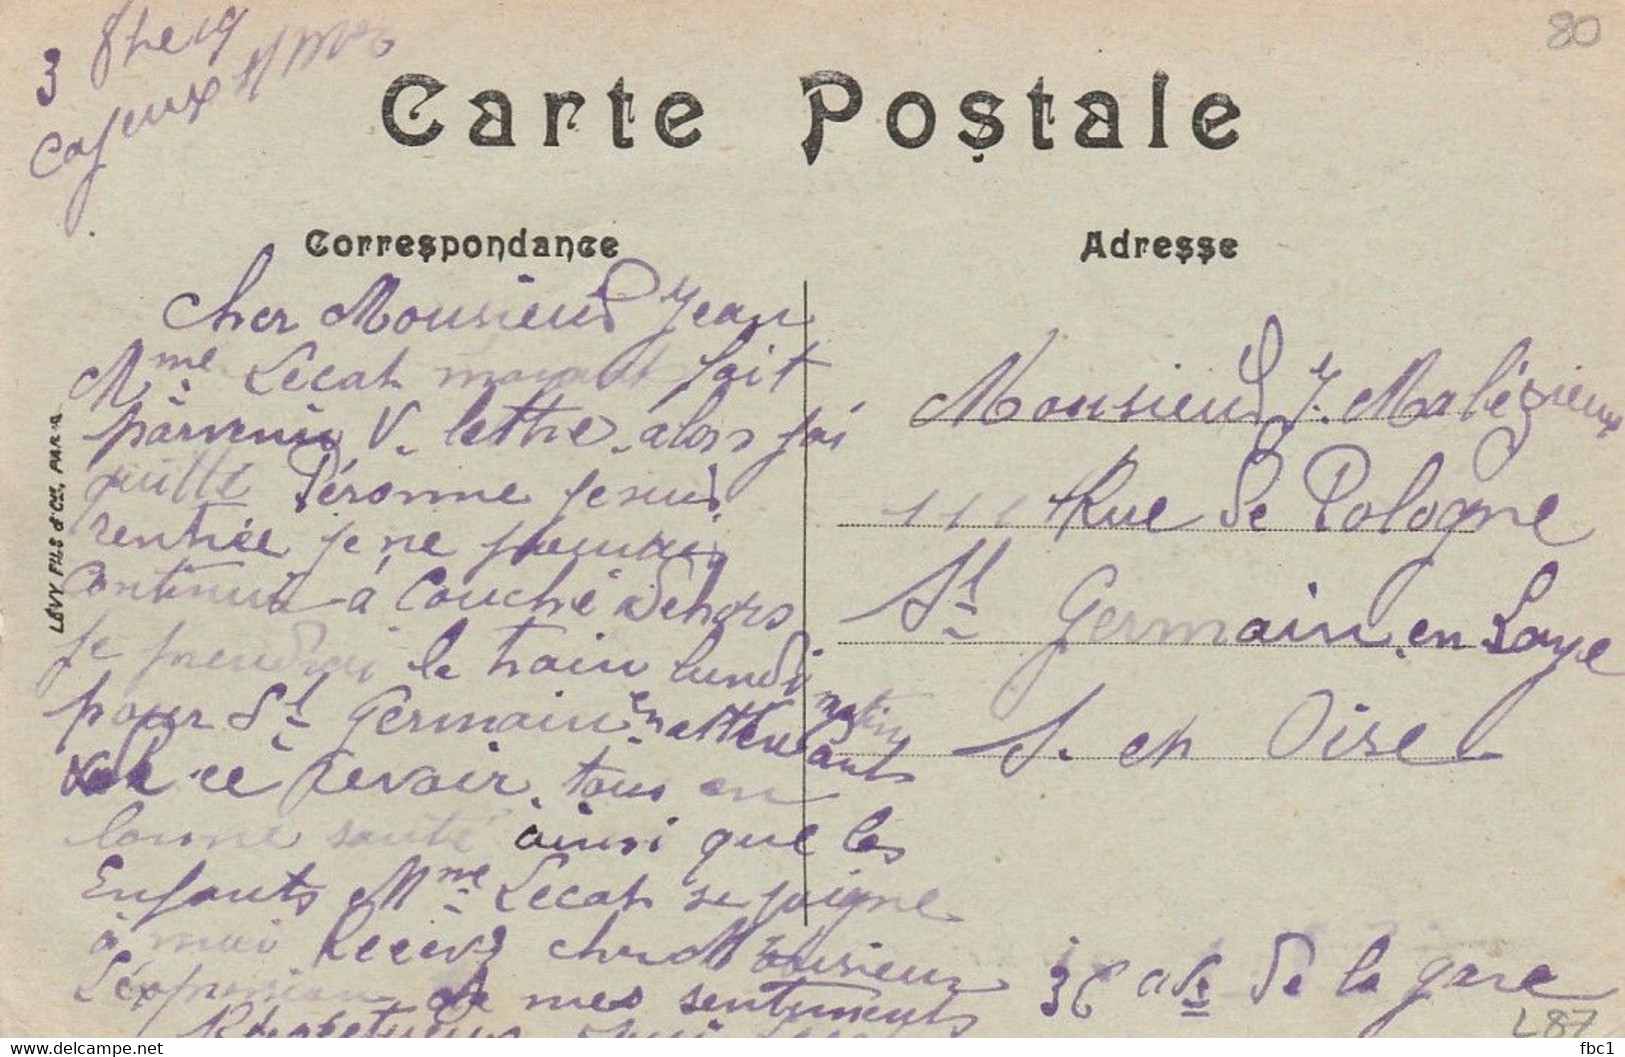 3 8bre 19
Cayeux s/ Mer
80
Carte Postale
Correspondance
Adresse
Cher Monsieur Jean
Mme Lecat m'ayant fait
parvenir V. lettre. alors j'ai
quitté Péronne je suis
rentrée je ne pouvais
continuer à Couché dehors
je prendrai le train lundi
matin
pour St Germain en attendant
ce revoir. tous en
bonne santé ainsi que les
Enfants Mme Lecat se joigne
à moi Recevez cher Monsieur
L'éxpression de mes sentiments
LÉVY FILS & Cie, PARIS
Monsieur J. Malézieux
111 Rue de Pologne
St Germain en Laye
S. et Oise
de la gare
L87
www.delcampe.net
fbc1